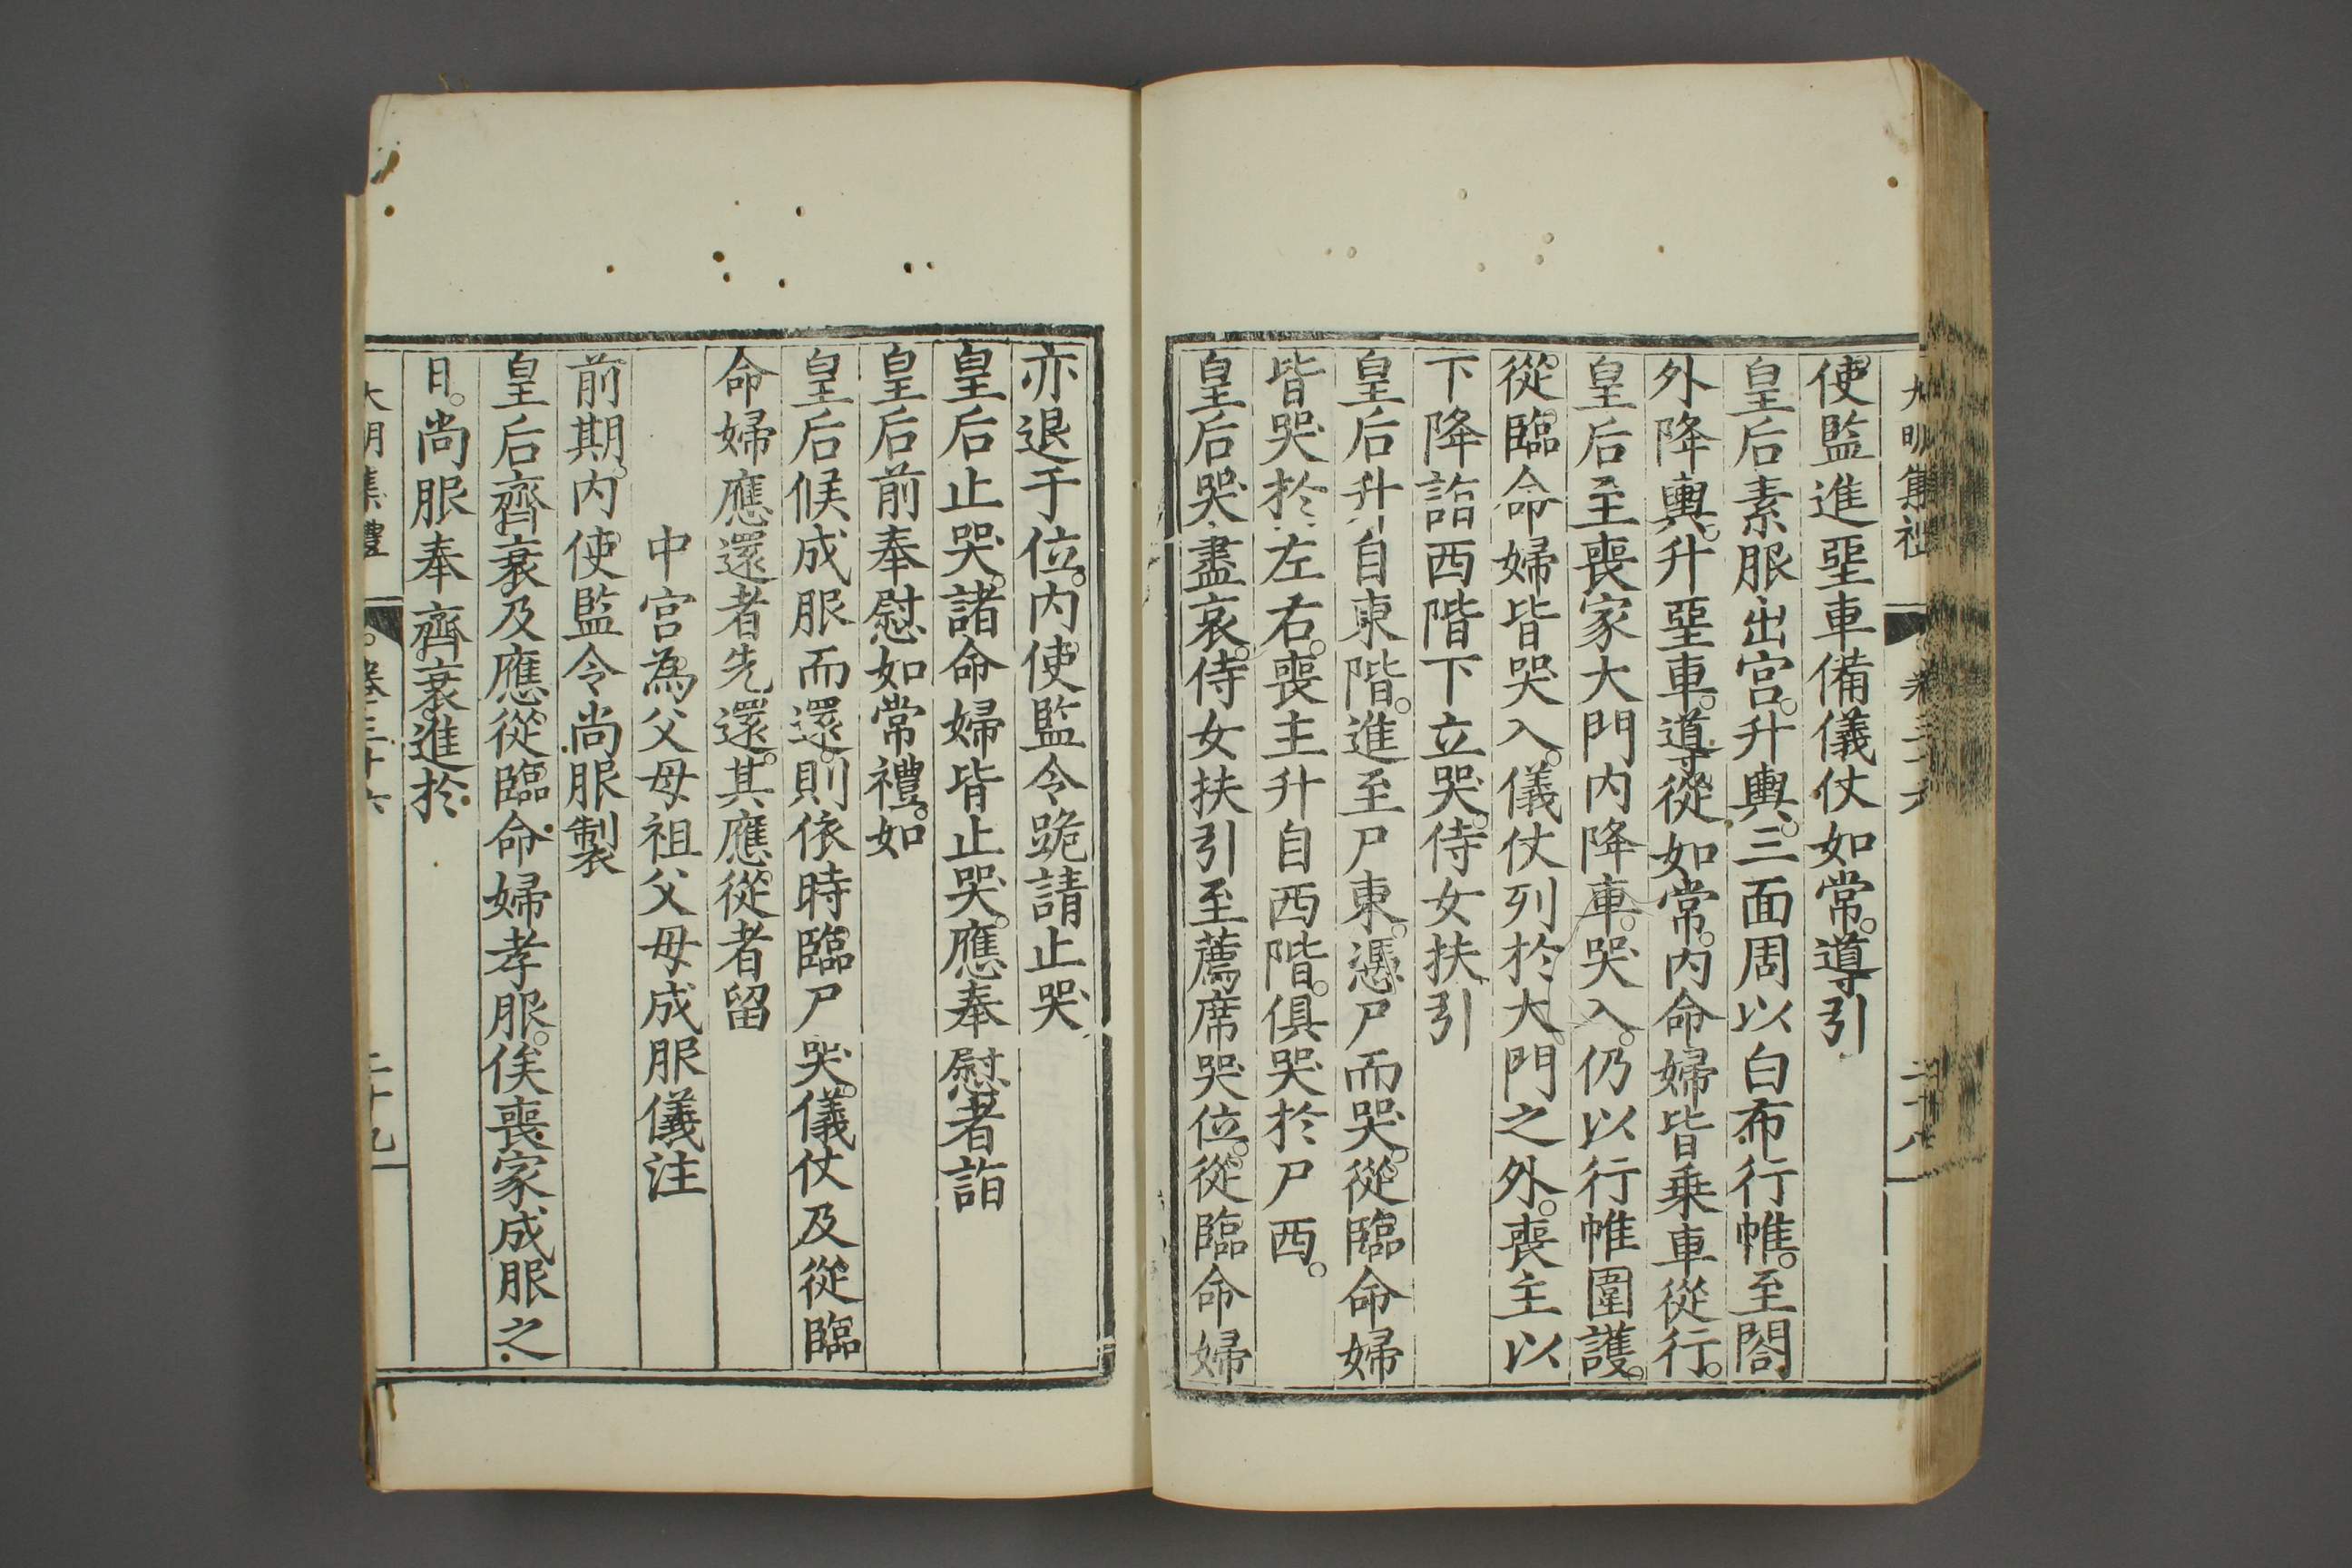 大明集禮 卷三十六 二十八
使監進堊車備儀仗如常。導引
皇后素服出宮。升輿。三面周以白布行帷。至閤
外降輿。升堊車。導從如常。內命婦皆乗車從行。
皇后至喪家大門內降車。哭入。仍以行帷圍護。
從臨命婦皆哭入。儀仗列於大門之外。喪主以
下降詣西階下立哭。侍女扶引
皇后升自東階。進至尸東。憑尸而哭。從臨命婦
皆哭於左右。喪主升自西階。俱哭於尸西。
皇后哭盡哀。侍女扶引至薦席哭位。從臨命婦
亦退于位。內使監令跪請止哭
皇后止哭。諸命婦皆止哭。應奉慰者詣
皇后前奉慰如常禮。如
皇后候成服而還。則依時臨尸哭。儀仗及從臨
命婦應還者先還。其應從者留
中宮為父母祖父母成服儀注
前期。內使監令尚服製
皇后齊衰及應從臨命婦孝服。俟喪家成服之
日。尚服奉齊衰進於
大明集禮 卷三十六 二十九